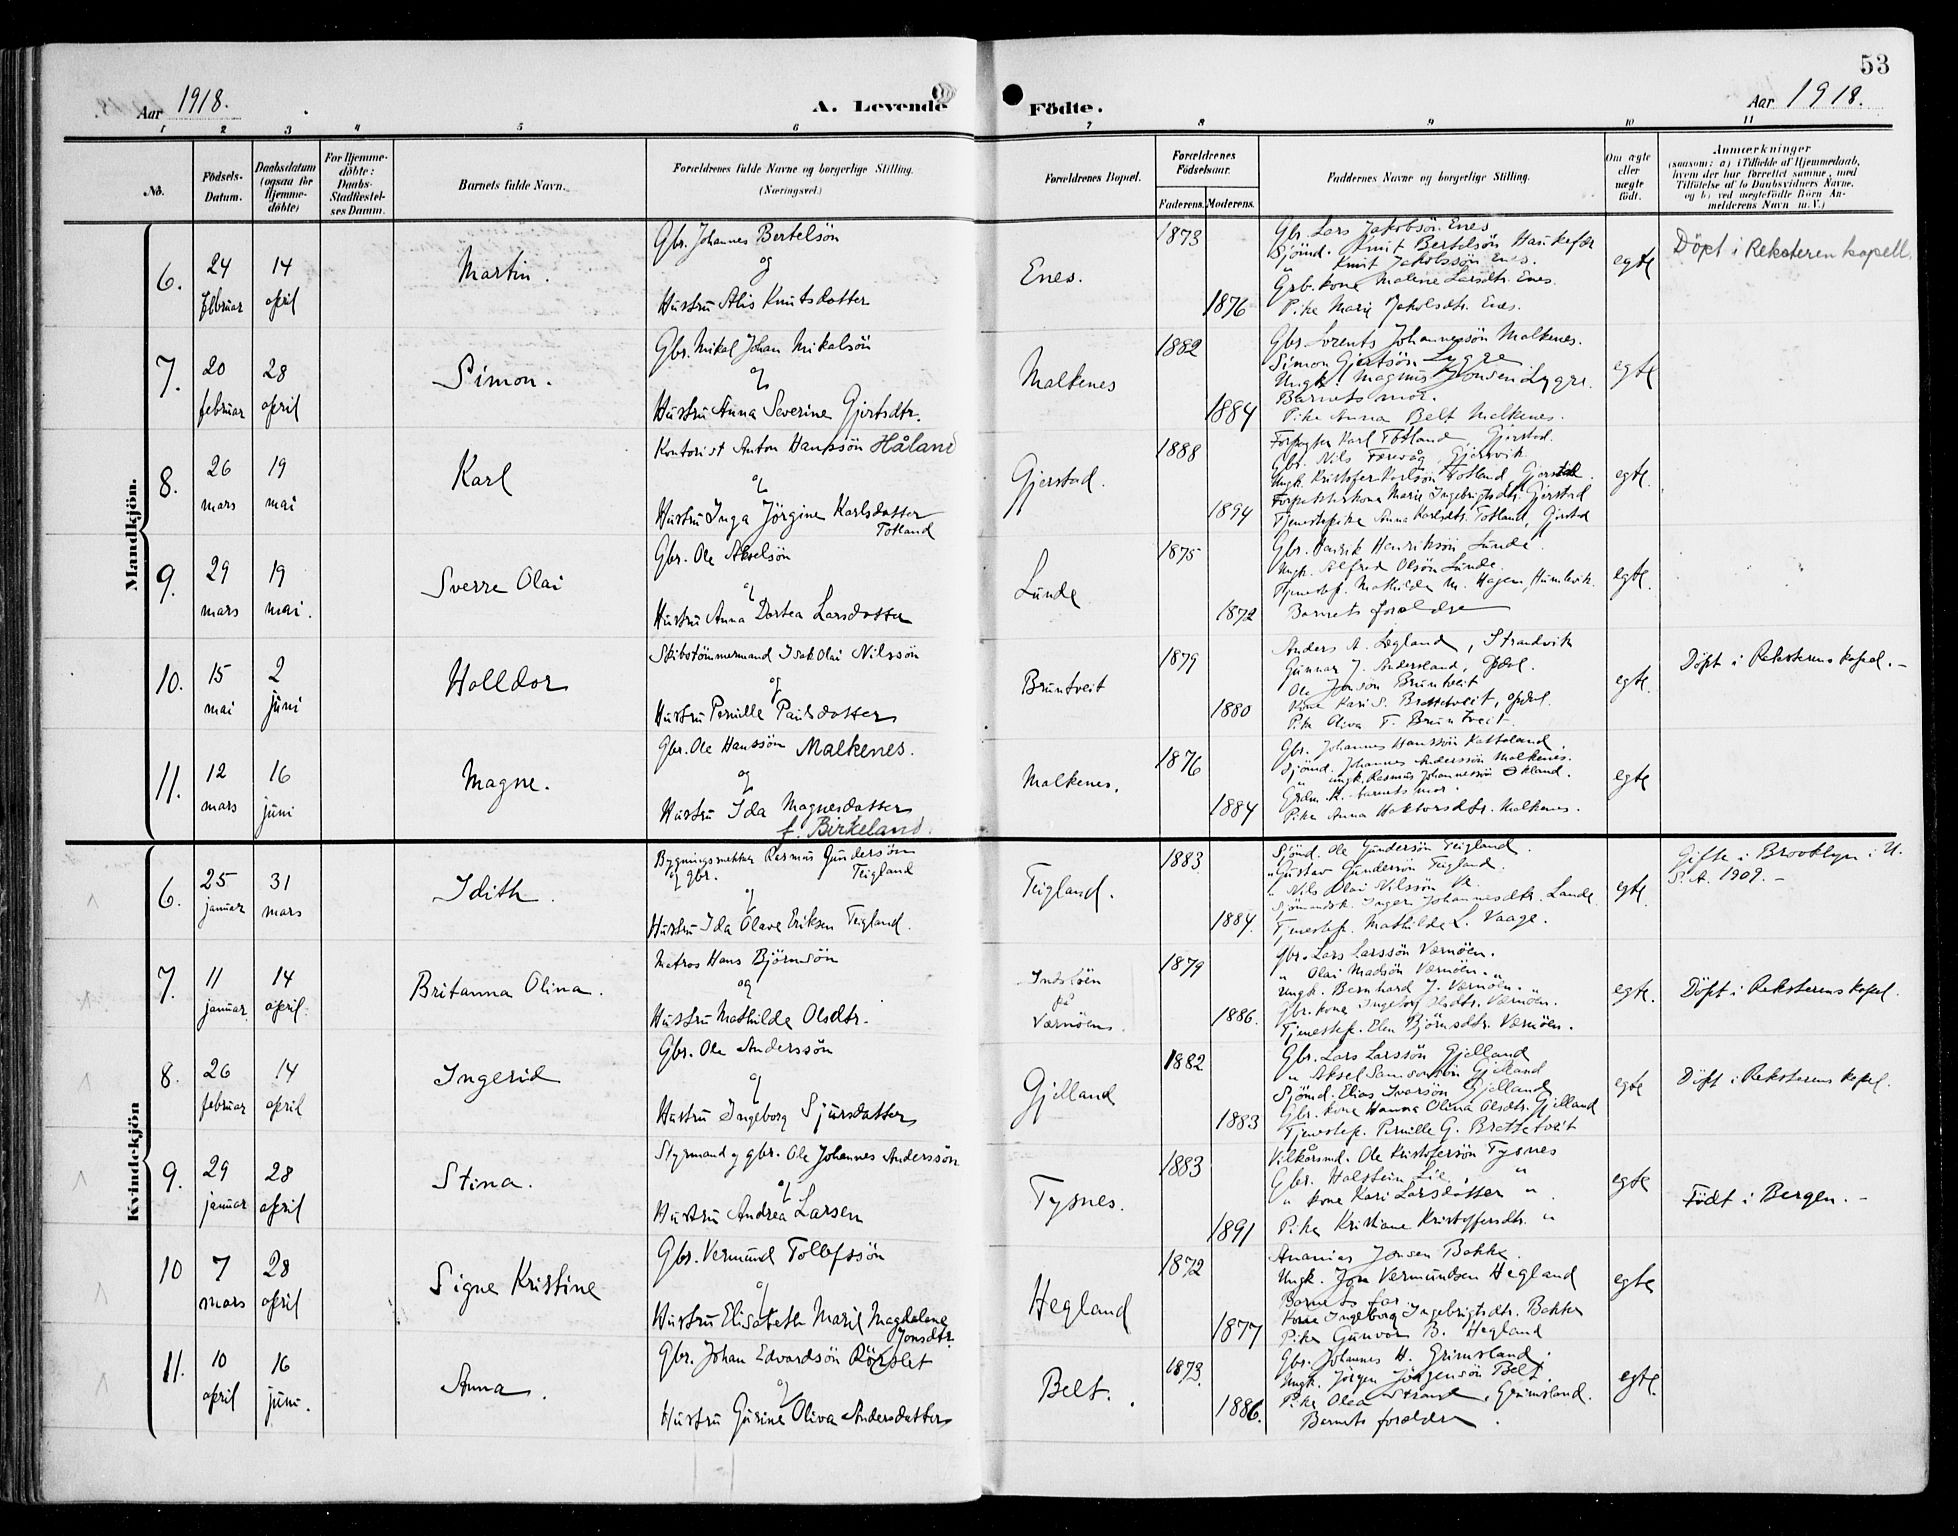 53
Aar 1918.
A. Levende Födte.
Aar 1918.
1 2 3 4 5 6 7 8 9 10 11
No.
Födsels-Datum.
Daabsdatum (ogsaa for Hjemme-döbte)
For Hjemme-döbte: Daabs-Stadfestel-ses Datum.
Barnets fulde Navn.
Forældrenes fulde Navne og borgerlige Stilling.
(Næringsvei.)
Forældrenes Bopæl.
Forældrenes Födselsaar.
Faderens. Moderens.
Faddernes Navne og borgerlige Stilling.
Om ægte eller uægte födt.
Anmærkninger
(saasom: a) i Tilfælde af Hjemmedaab, hvem der har forrettet samme, med Tilföielse af to Daabsvidners Navne, og b) ved uægtefödte Börn An-melderens Navn m. V.)
Mandkjön.
6. 24 februar 14 april Martin.
Gbr. Johannes Bertelsön
og
Hustru Alis Knutsdatter
Enes. 1873 1876
Gbr. Lars Jakobsön Enes
Sjömd. Knut Bertelsön
" Knut Jakobssön Enes.
Grb. kone Maline Larsdtr. Enes.
Pike Marie Jakobsdtr. Enes.
egte
Döpt i Reksteren kapell.
7. 20 februar 28 april Simon.
Gbr. Mikal Johan Mikalsön
og
Hustru Anna Severine Gjertsdtr.
Malkenes 1882 1884
Gbr. Lorents Johannessön Malkenes.
Simon Gjertsön Lygre
Ungk. Magnus Lygre.
Barnets mor.
Pike Anna Belt Malkenes.
egte
8. 26 mars 19 mai Karl
Kontorist Anton Hanssön Håland
og
Hustru Inga Jörgine Karlsdatter
Totland
Gjerstad. 1888 1894
Forpagter Karl Totland Gjerstad.
Gbr. Nils Færevåg, Gjersvik
Ungk. Kristofer Karlsön Totland, Gjerstad.
Forpakterkona Marie Ingebrigtsdtr. Gjerstad
Tjenestepike Anna Karlsdtr. Totland, Gjerstad
egte.
9. 29 mars 19 mai. Sverre Olai
Gbr. Ole Akselsön
og
Hustru Anna Dortea Larsdatter
Lunde 1875 1872
Gbr. Henrik Henriksön Lunde.
Ungk. Alfred Olsön Lunde.
Tjenestep. Mathilde M. Hagen, Humlevik.
Barnets forældre
egte.
10. 15 mai 2 juni Halldor
Skibstömmermand Isak Olai Nilssön
og
Hustru Pernille Paulsdatter
Bruntveit 1879 1880
Anders A. Legland, Strandvik
Gunnar J. Andersland, Opdal.
Ole Jonsön Bruntveit
Kone Kari S. Brattetveit, Opdal.
Pike Oliva T. Bruntveit.
egte.
Döpt i Reksterens kapel. –
11. 12 mars 16 juni Magne.
Gbr. Ole Hanssön Malkenes.
og
Hustru Ida Magnesdatter
f. Birkeland.
Malkenes. 1876 1884
Gbr. Johannes Hanssön Katteland.
Sjömd. Johannes Anderssön Malkenes.
" ungk. Rasmus Johannessön
barnets mor.
Pike Anna Malkenes.
egte
Kvindekjön
6. 25 januar 31 mars Idith.
Bygningssnekker Rasmus Gundersön
og gbr. Teigland
og
Hustru Ida Olava Eriksen Teigland.
Teigland. 1883 1884.
Sjömd. Ole Gundersön Teigland.
" Gustav Gundersön Teigland.
" Nils Olai Nilssön
Sjömandsk. Inger Johannesdtr. Lande
Tjenestep. Mathilde L. Vaage.
egte
Gifte i Brooklyn i U.
S. A. 1909. –
7. 11 januar 14 april. Britanna Olina.
Matros Hans Björnsön
og
Hustru Mathilde Olsdtr.
på
Værnöen. 1879 1886.
Gbr. Lars Larssön Værnöen.
" Olai Madsön Værnöen. "
Ungk. Bernhard J. Værnöen. "
Gbr. kone Ingeborg Olsdtr. Værnöen.
Tjenestep. Elen Björnsdtr. Værnöen.
egte.
Döpt i Reksterens kapel.
8. 26 februar 14 april Ingerid
Gbr. Ole Anderssön
og
Hustru Ingeborg Sjursdatter
Gjelland 1882 1883
Gbr. Lars Larssön Gjelland
" Aksel Samsonsön Gjelland
Sjömd. Elias Ivarsön Gjelland
Gbr. kone Hanna Olina Olsdtr. Gjelland
Tjenestep. Pernille G. Brattetveit
egte
Döpt i Reksterens kapel.
9. 29 januar 28 april Stina.
Styrmand og gbr. Ole Johannes Anderssön
og
Hustru Andrea Larsen
Tysnes. 1883 1891
Vilkårsmd. Ole Kristofersön Tysnes
Gbr. Halstein Lie "
" kone Kari Larsdatter "
Pike Kristiane Kristoffersdtr. "
egte
Födt i Bergen. –
10 7 mars 28 april Signe Kristine
Gbr. Vermund Tollefssön
og
Hustru Elisabeth Marie Magdalene
Jonsdtr.
Hegland 1872 1877
Ananias Jonsen Bakke.
Ungk. Jon Vermundsen Hegland
Barnets far
Kone Ingeborg Ingebrigtsdtr. Bakke
Pike Gunvor B. Hegland
egte
11. 10 april 16 juni. Anna.
Gbr. Johan Edvardsön Rörslet
og
Hustru Gurine Oliva Andersdatter
Belt. 1873. 1886.
Gbr. Johannes H. Grimsland.
Ungk. Jörgen Jörgensön Belt.
Pike Olea Strand, Grimsland.
Barnets forældre.
egte.